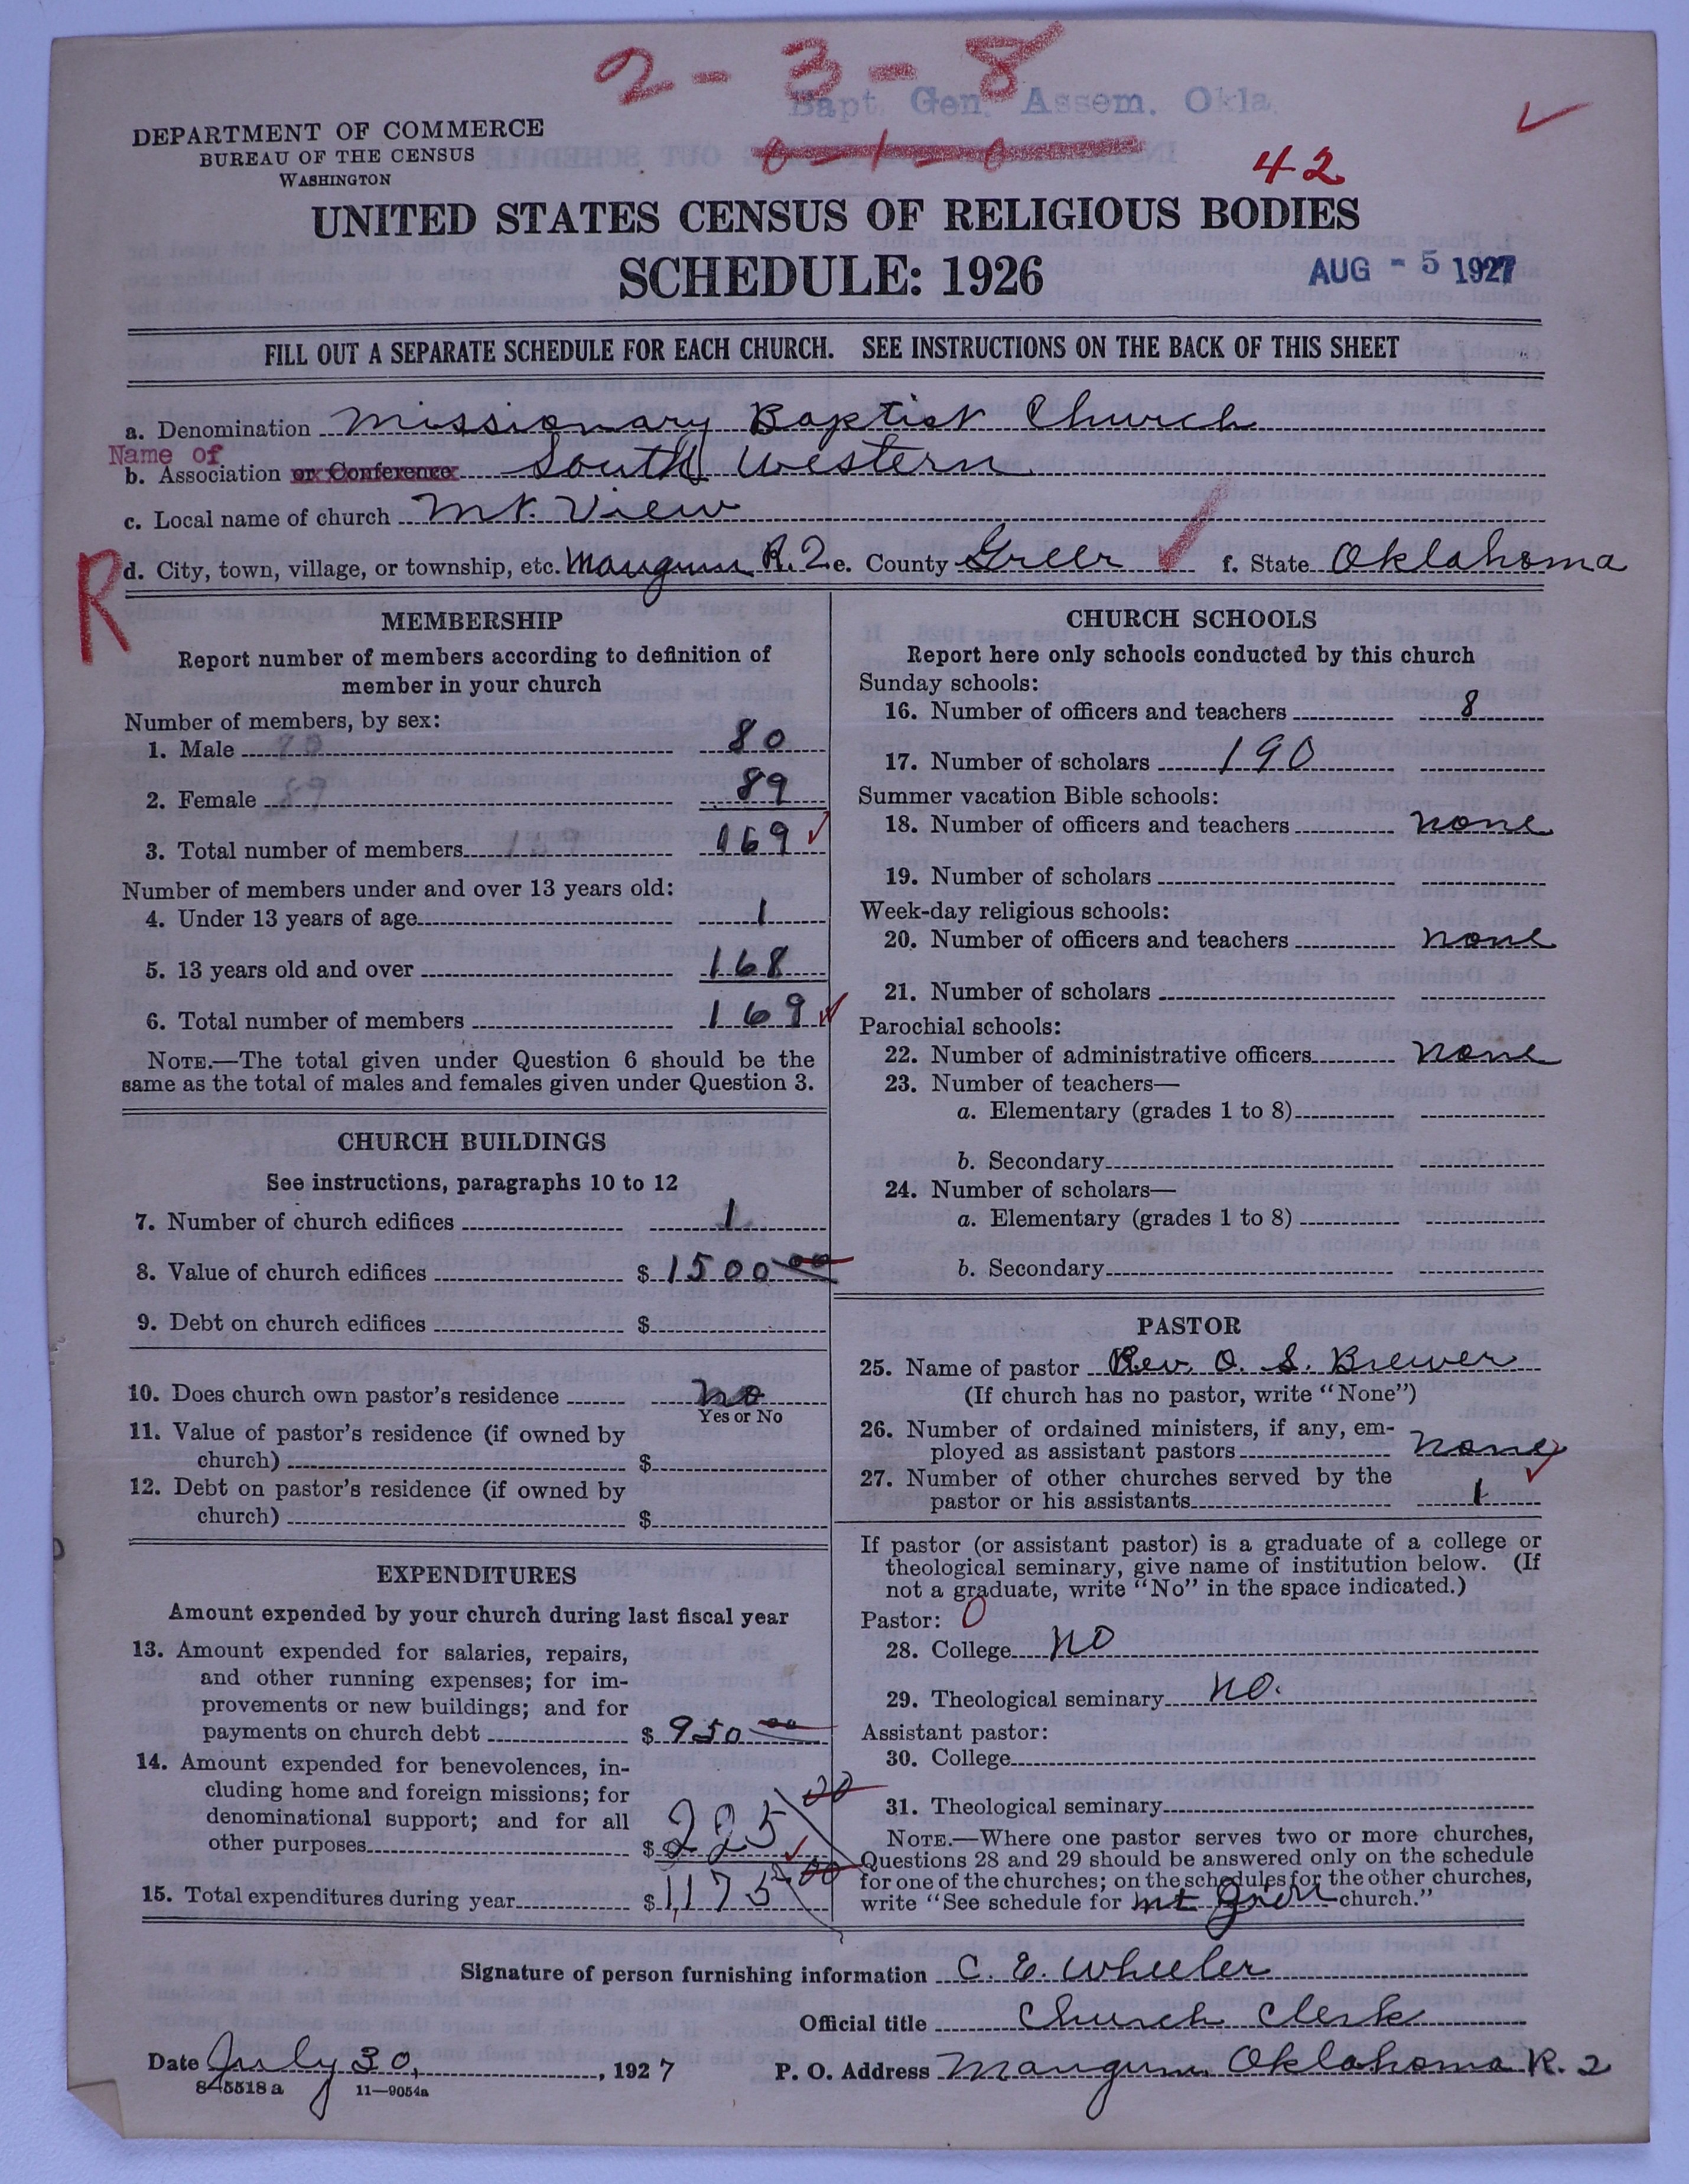 2-3-8
Bapt. Gen. Assem. Okla.
0-1-0
42
DEPARTMENT OF COMMERCE
BUREAU OF THE CENSUS
WASHINGTON
UNITED STATES CENSUS OF RELIGIOUS BODIES
SCHEDULE: 1926
AUG - 5 1927
FILL OUT A SEPARATE SCHEDULE FOR EACH CHURCH. SEE INSTRUCTIONS ON THE BACK OF THIS SHEET
a. Denomination Missionary Baptist Church
Name of
b. Association or Conference South Western
c. Local name of church Mt. View
R
d. City, town, village, or township, etc. Mangum R.2 e. County Greer f. State Oklahoma
MEMBERSHIP
Report number of members according to definition of
member in your church
Number of members, by sex:
1. Male 80 80
2. Female 89 89
3. Total number of members 169 169
Number of members under and over 13 years old:
4. Under 13 years of age 1
5. 13 years old and over 168
6. Total number of members 169
NOTE.—The total given under Question 6 should be the
same as the total of males and females given under Question 3.
CHURCH BUILDINGS
See instructions, paragraphs 10 to 12
7. Number of church edifices 1
8. Value of church edifices $ 1500 00
9. Debt on church edifices $
10. Does church own pastor's residence no
Yes or No
11. Value of pastor's residence (if owned by
church) $
12. Debt on pastor's residence (if owned by
church) $
EXPENDITURES
Amount expended by your church during last fiscal year
13. Amount expended for salaries, repairs,
and other running expenses; for im-
provements or new buildings; and for
payments on church debt $ 950 00
14. Amount expended for benevolences, in-
cluding home and foreign missions; for
denominational support; and for all
other purposes $ 225 00
15. Total expenditures during year $ 1,175 00
CHURCH SCHOOLS
Report here only schools conducted by this church
Sunday schools:
16. Number of officers and teachers 8
17. Number of scholars 190
Summer vacation Bible schools:
18. Number of officers and teachers none
19. Number of scholars
Week-day religious schools:
20. Number of officers and teachers none
21. Number of scholars
Parochial schools:
22. Number of administrative officers none
23. Number of teachers—
a. Elementary (grades 1 to 8)
b. Secondary
24. Number of scholars—
a. Elementary (grades 1 to 8)
b. Secondary
PASTOR
25. Name of pastor Rev. O. S. Brewer
(If church has no pastor, write "None")
26. Number of ordained ministers, if any, em-
ployed as assistant pastors none
27. Number of other churches served by the
pastor or his assistants 1
If pastor (or assistant pastor) is a graduate of a college or
theological seminary, give name of institution below. (If
not a graduate, write "No" in the space indicated.)
Pastor: 0
28. College No
29. Theological seminary No.
Assistant pastor:
30. College
31. Theological seminary
NOTE.—Where one pastor serves two or more churches,
Questions 28 and 29 should be answered only on the schedule
for one of the churches; on the schedules for the other churches,
write "See schedule for Mt church."
Signature of person furnishing information C. E. Wheeler
Official title Church Clerk
Date July 30, 1927 P. O. Address Mangum Oklahoma R. 2
8-5518 a 11—9054a